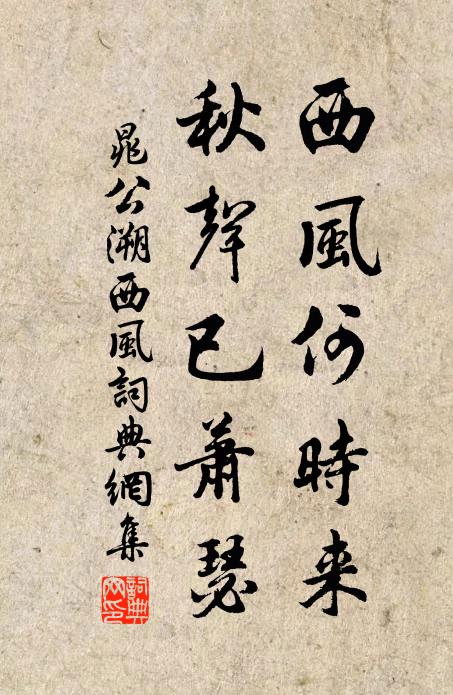 西風何時来
秋聲已蕭瑟
晁公溯西風詞典網集
詞典網印